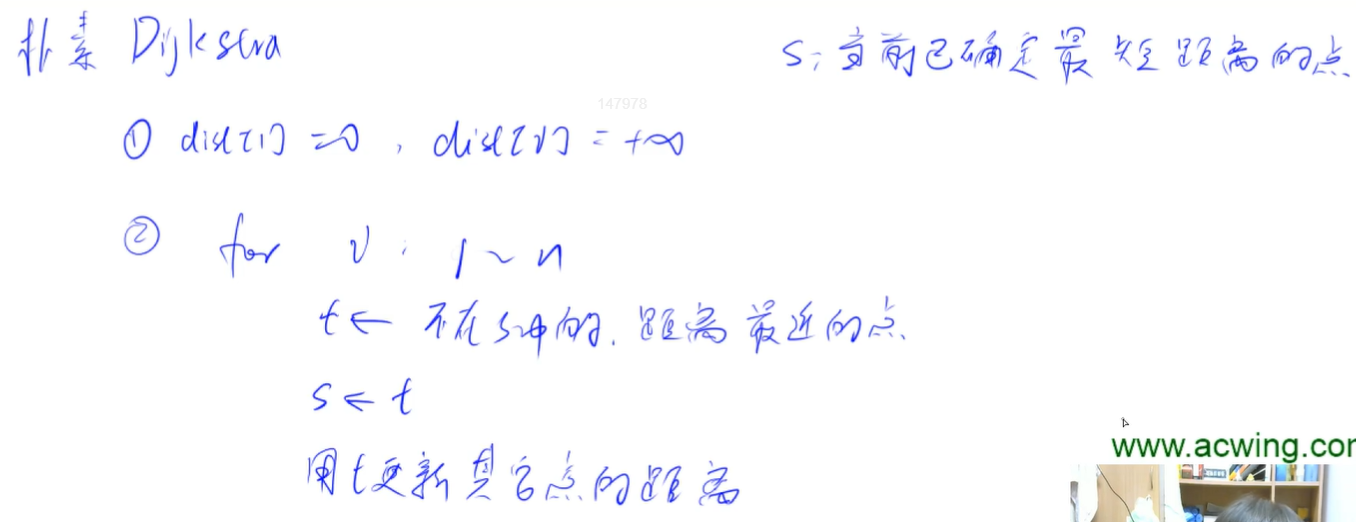 朴素 Dijkstra
s: 当前已确定最短距离的点
147978
① dist[1] = 0, dist[v] = +∞
② for v: 1 ~ n
t ← 不在s中的, 距离最近的点.
s ← t
用t更新其它点的距离
www.acwing.cor